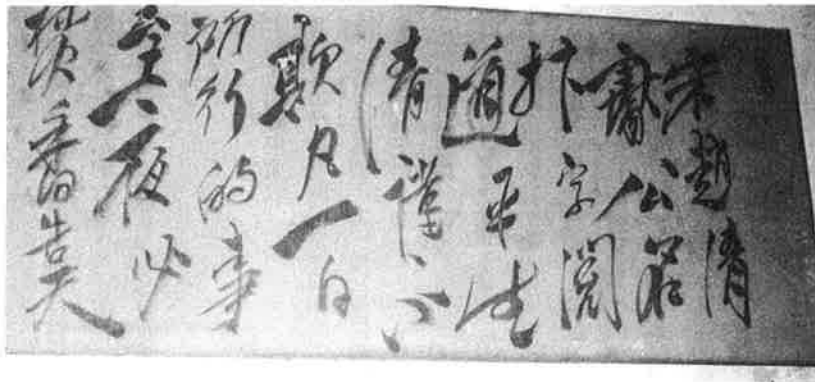 宋趙清
獻公名
抃字閱
道平生
清謹不
欺凡一日
所行的事
至入夜必
焚香告天